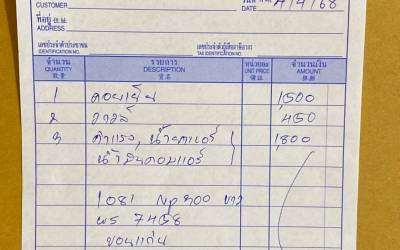 CUSTOMER
วันที่ DATE 4/4/68
ที่อยู่
ADDRESS
เลขประจำตัวประชาชน เลขประจำตัวผู้เสียภาษีอากร
IDENTIFICATION NO. TAX IDENTIFICATION NO.
จำนวน รายการ หน่วยละ จำนวนเงิน
QUANTITY DESCRIPTION UNIT PRICE AMOUNT
1 คอยเย็น 1,500
2 วาล์ว 450
3 ค่าแรง, น้ำยาแอร์ 1,800
น้ำมันคอมแอร์
1081 NP 300 ขาว
ผร 7458
ขอนแก่น